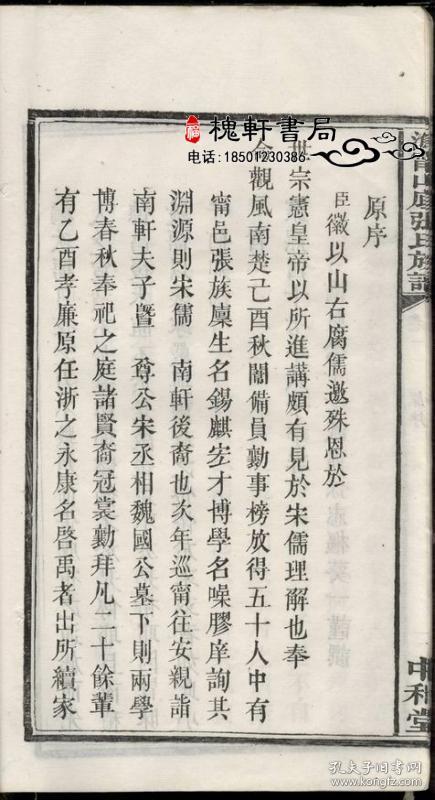 槐軒書局
电话:18501230386
張氏族譜
中和堂
原序
臣徽以山右腐儒邀殊恩於
世宗憲皇帝以所進講頗有見於宋儒理解也奉
命觀風南楚己酉秋闈備員勷事榜放得五十人中有
甯邑張族廩生名錫麒宏才博學名噪膠庠詢其
淵源則宋儒 南軒後裔也次年巡甯往安親詣
南軒夫子暨 尊公宋丞相魏國公墓下則兩學
博春秋奉祀之庭諸賢裔冠裳勷拜凡二十餘輩
有乙酉孝廉原任浙之永康名啓禹者出所續家
孔夫子旧书网